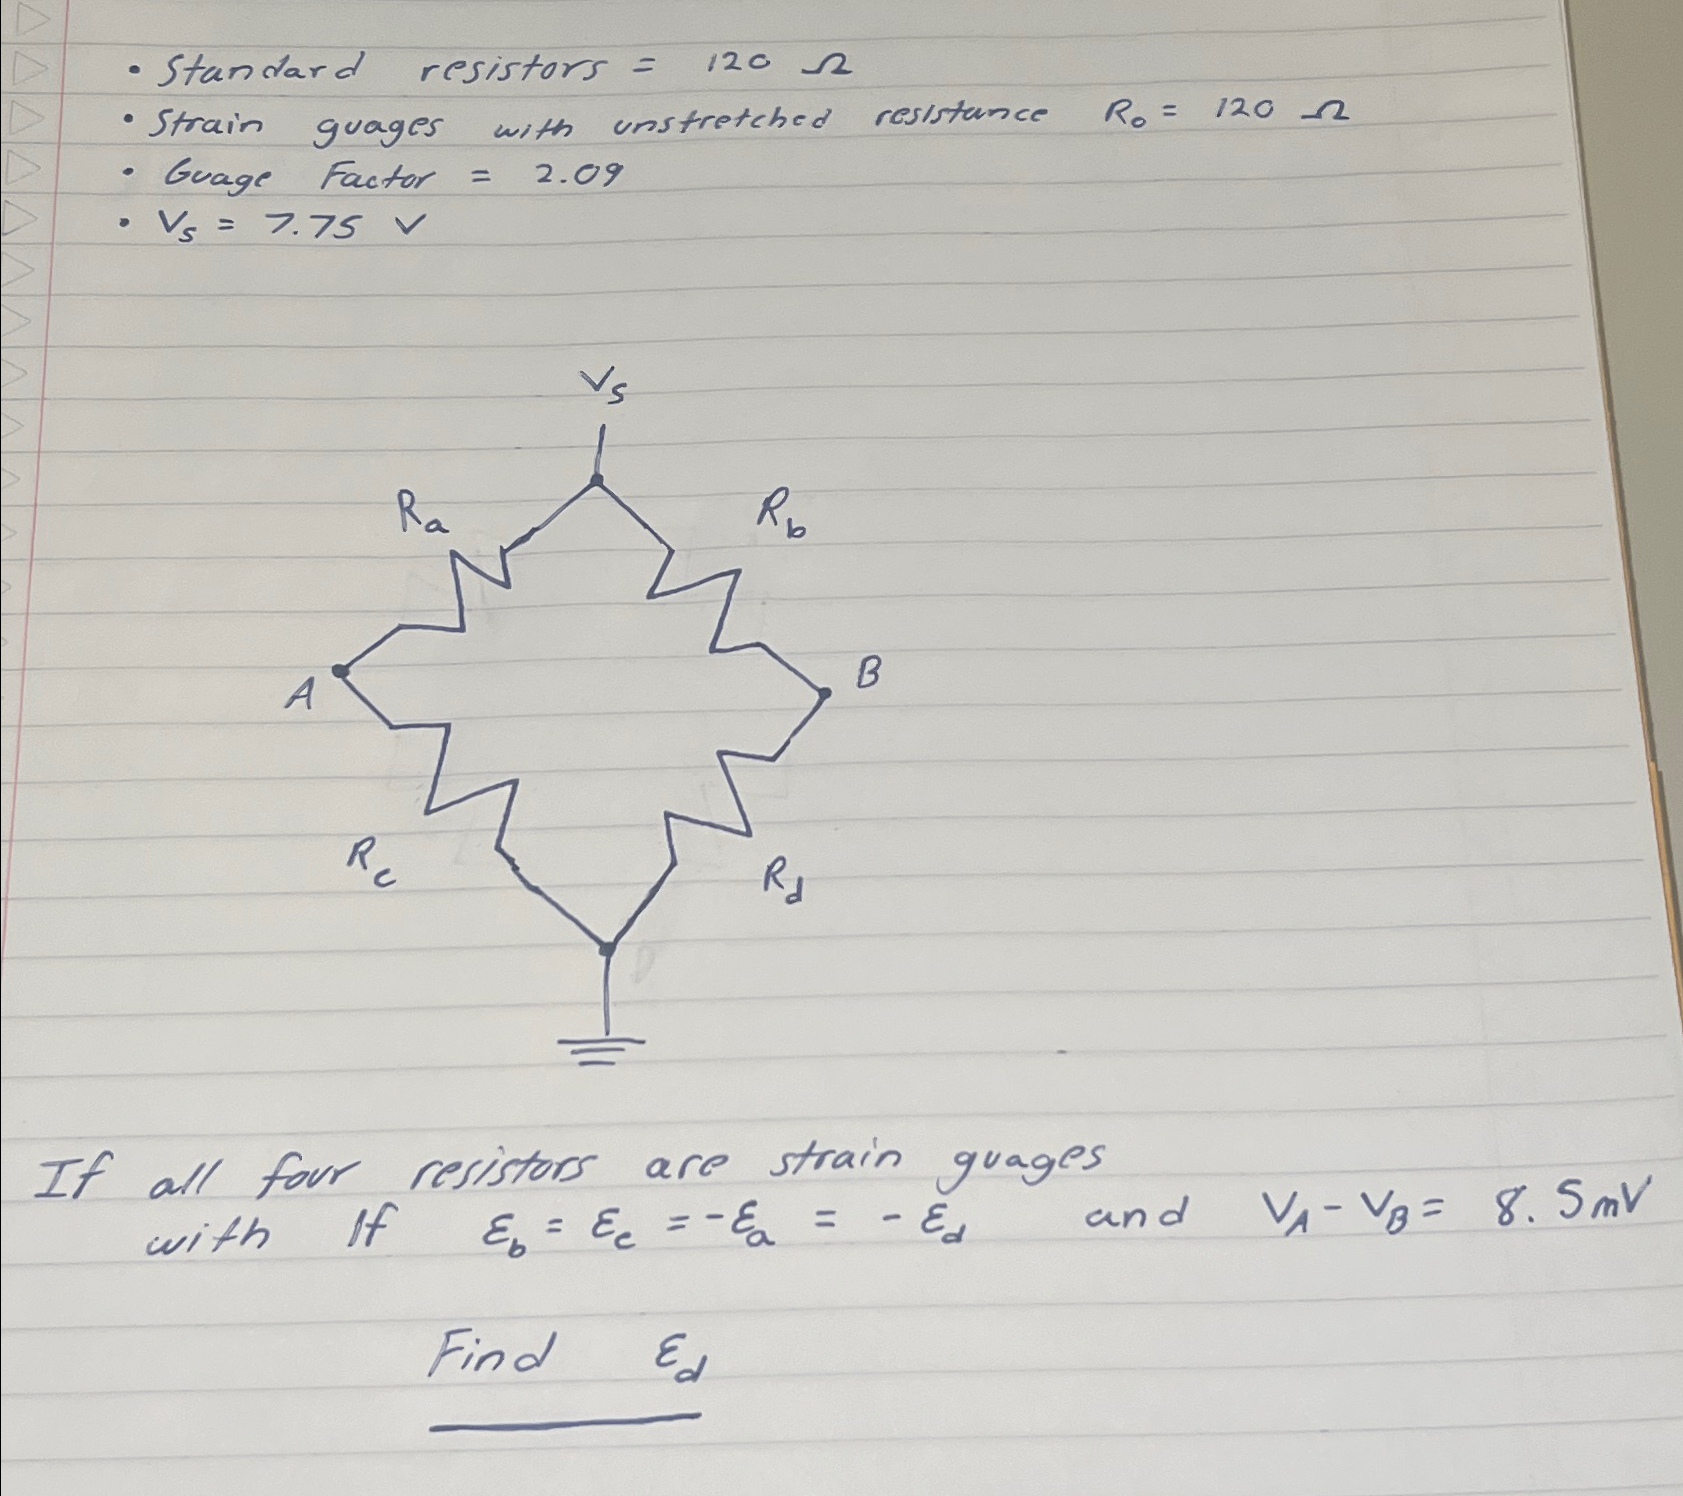 • Standard resistors = 120 Ω
• Strain guages with unstretched resistance R₀ = 120 Ω
• Guage Factor = 2.09
• Vs = 7.75 V
Vs
Ra Rb
A B
Rc Rd
If all four resistors are strain guages
with If εb = εc = -εa = -εd and VA - VB = 8.5mV
Find εd